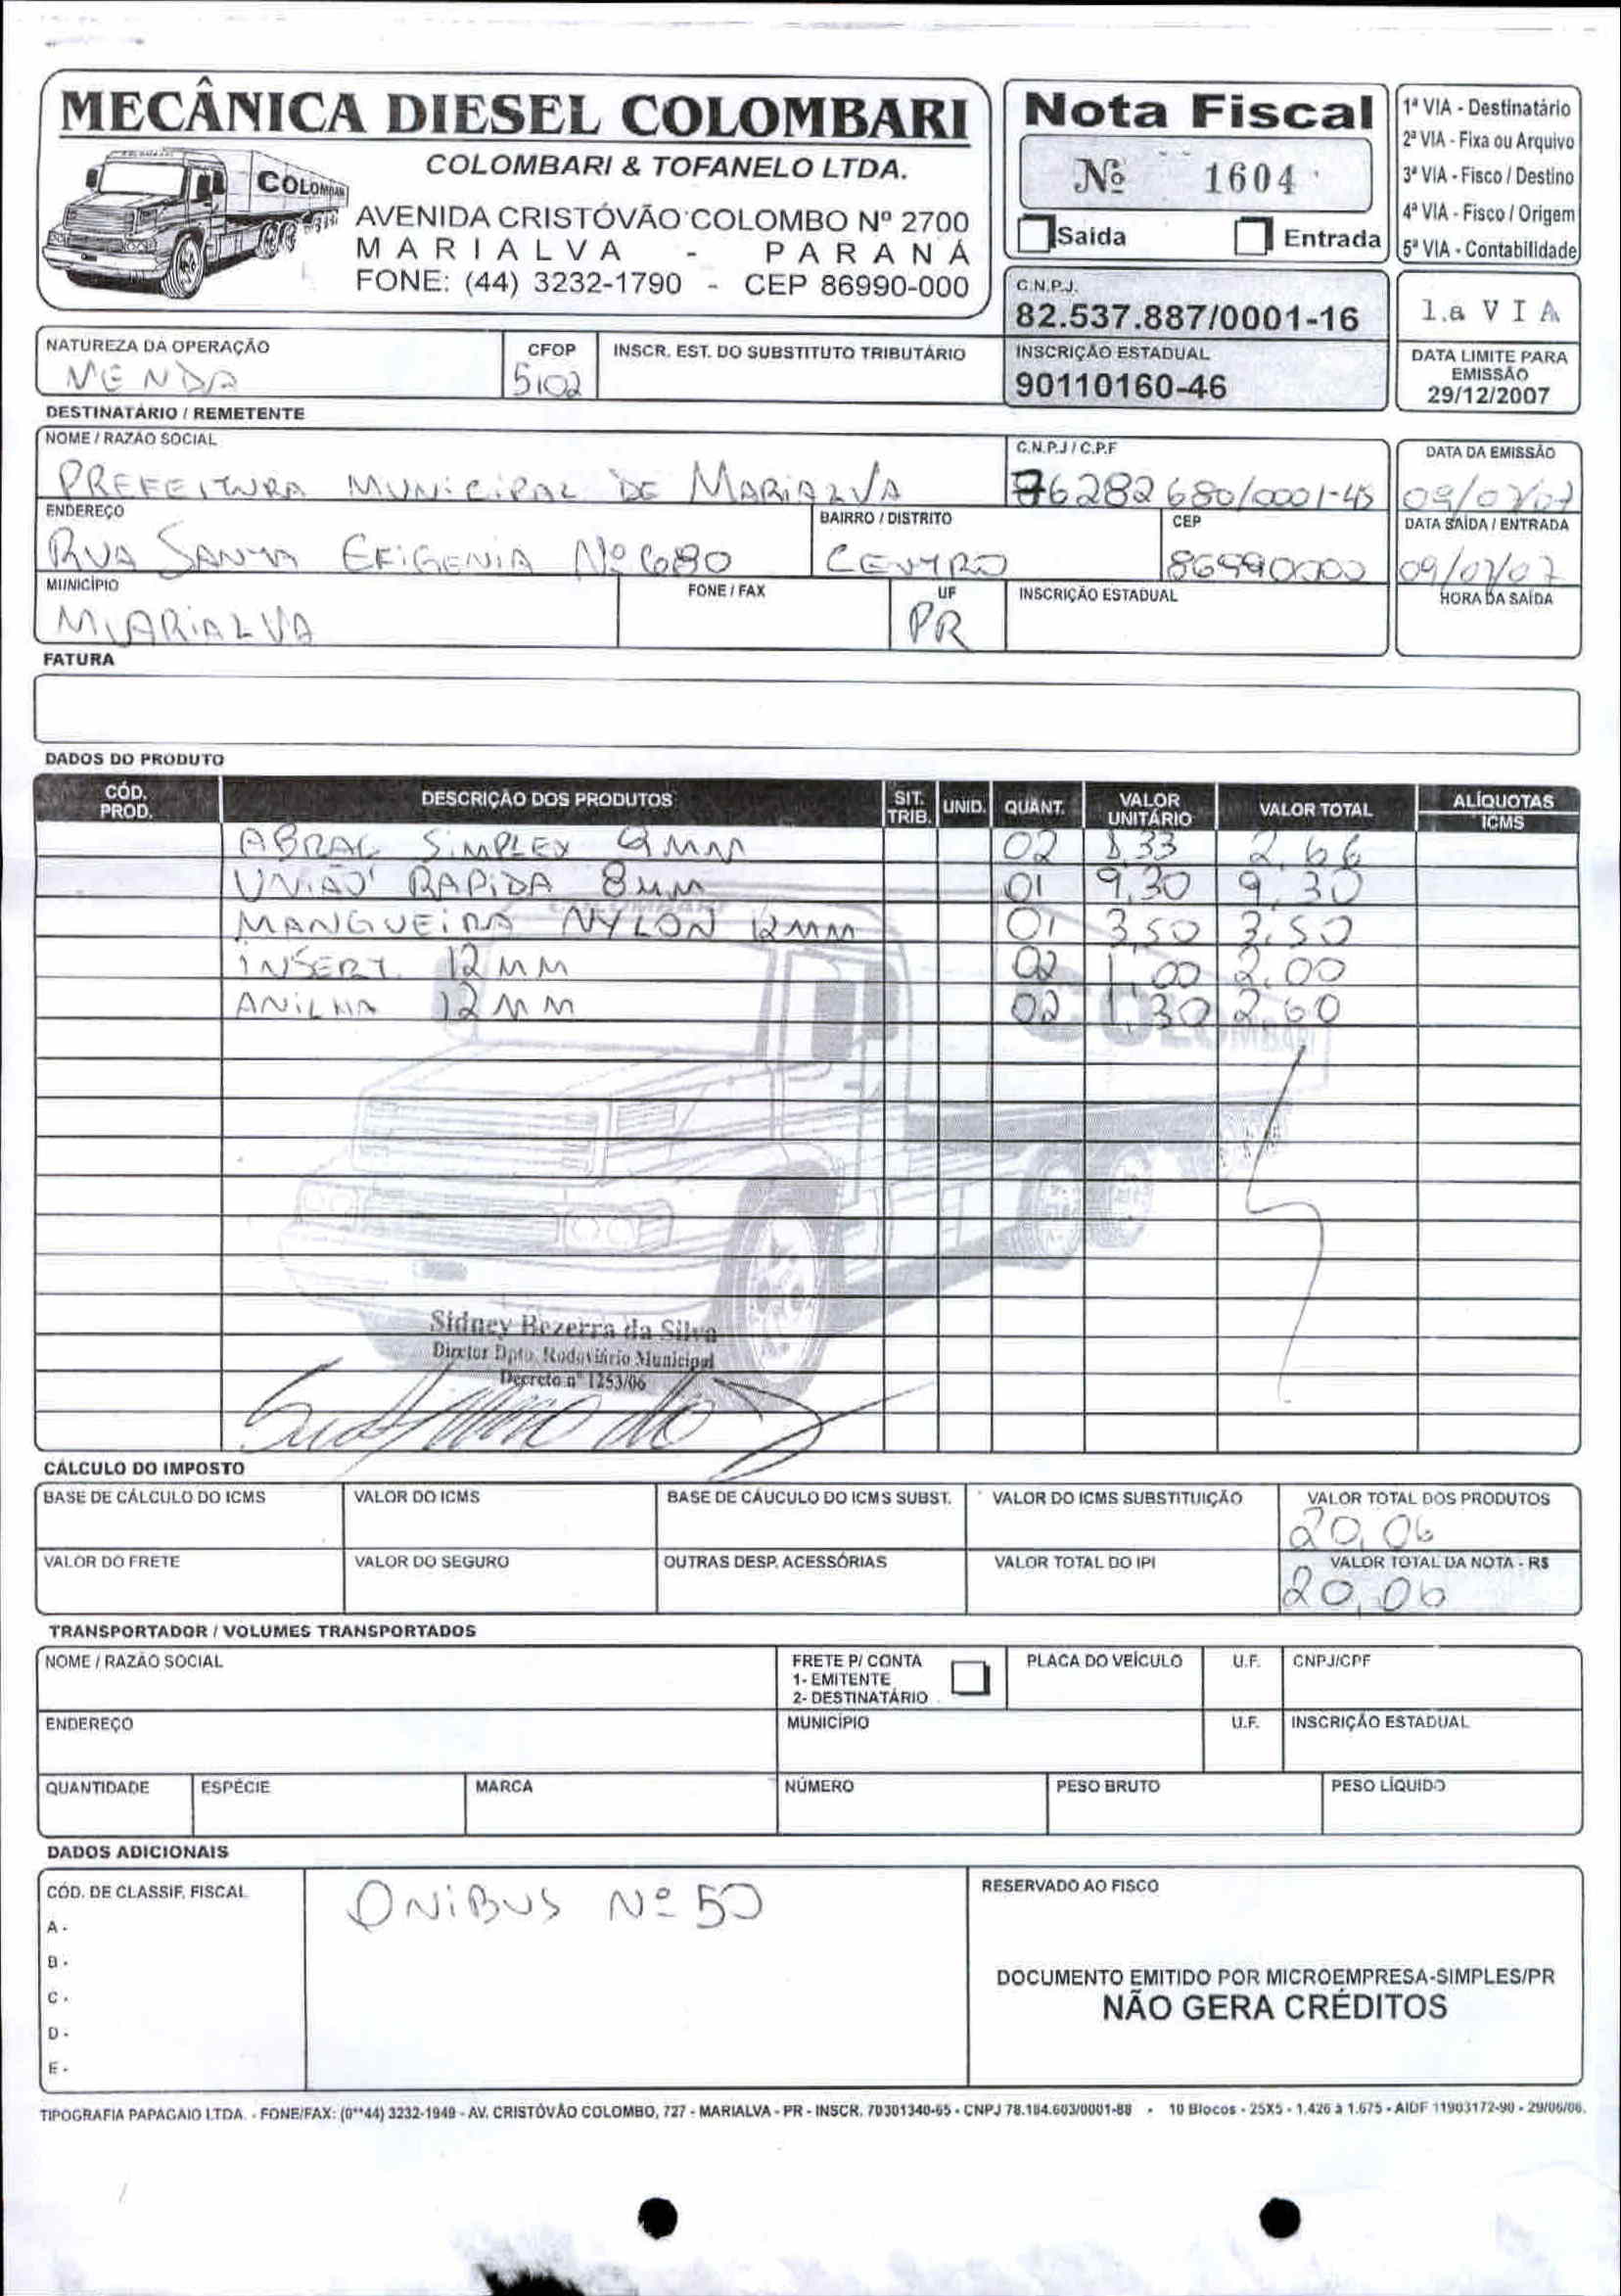 MECÂNICA DIESEL COLOMBARI
COLOMBARI & TOFANELO LTDA.
COLOMBARI
AVENIDA CRISTÓVÃO COLOMBO Nº 2700
MARIALVA - PARANÁ
FONE: (44) 3232-1790 - CEP 86990-000
Nota Fiscal
Nº 1604
Saída Entrada
1ª VIA - Destinatário
2ª VIA - Fixa ou Arquivo
3ª VIA - Fisco / Destino
4ª VIA - Fisco / Origem
5ª VIA - Contabilidade
C.N.P.J.
82.537.887/0001-16
INSCRIÇÃO ESTADUAL
90110160-46
1.a VIA
DATA LIMITE PARA
EMISSÃO
29/12/2007
NATUREZA DA OPERAÇÃO CFOP INSCR. EST. DO SUBSTITUTO TRIBUTÁRIO
VENDA 5102
DESTINATÁRIO / REMETENTE
NOME / RAZÃO SOCIAL C.N.P.J / C.P.F DATA DA EMISSÃO
PREFEITURA MUNICIPAL DE MARIALVA 76282680/0001-45 09/07/07
ENDEREÇO BAIRRO / DISTRITO CEP DATA SAÍDA / ENTRADA
RUA SANTA EFIGENIA Nº 680 CENTRO 86990000 09/07/07
MUNICÍPIO FONE / FAX UF INSCRIÇÃO ESTADUAL HORA DA SAÍDA
MARIALVA PR
FATURA
DADOS DO PRODUTO
CÓD. PROD. DESCRIÇÃO DOS PRODUTOS SIT. TRIB. UNID. QUANT. VALOR UNITÁRIO VALOR TOTAL ALÍQUOTAS ICMS
ABRAC SIMPLEX 02 1,33 2,66
UNIAO RAPIDA 8MM 01 9,30 9,30
MANGUEIRA NYLON 12MM 01 3,50 3,50
INSERT. 12MM 02 1,00 2,00
ANILHA 12MM 02 1,30 2,60
COLOMBARI
Sidney Bezerra da Silva
Diretor Dpto. Rodoviário Municipal
Decreto nº 1253/06
CÁLCULO DO IMPOSTO
BASE DE CÁLCULO DO ICMS VALOR DO ICMS BASE DE CÁUCULO DO ICMS SUBST. VALOR DO ICMS SUBSTITUIÇÃO VALOR TOTAL DOS PRODUTOS
20,06
VALOR DO FRETE VALOR DO SEGURO OUTRAS DESP. ACESSÓRIAS VALOR TOTAL DO IPI VALOR TOTAL DA NOTA - R$
20,06
TRANSPORTADOR / VOLUMES TRANSPORTADOS
NOME / RAZÃO SOCIAL FRETE P/ CONTA PLACA DO VEÍCULO U.F. CNPJ/CPF
1- EMITENTE
2- DESTINATÁRIO
ENDEREÇO MUNICÍPIO U.F. INSCRIÇÃO ESTADUAL
QUANTIDADE ESPÉCIE MARCA NÚMERO PESO BRUTO PESO LÍQUIDO
DADOS ADICIONAIS
CÓD. DE CLASSIF. FISCAL
A -
B -
C -
D -
E -
ONIBUS Nº 50
RESERVADO AO FISCO
DOCUMENTO EMITIDO POR MICROEMPRESA-SIMPLES/PR
NÃO GERA CRÉDITOS
TIPOGRAFIA PAPAGAIO LTDA. - FONE/FAX: (0**44) 3232-1949 - AV. CRISTÓVÃO COLOMBO, 727 - MARIALVA - PR - INSCR. 70301340-65 - CNPJ 78.184.603/0001-88 - 10 Blocos - 25X5 - 1.426 à 1.675 - AIDF 11903172-90 - 29/06/06.